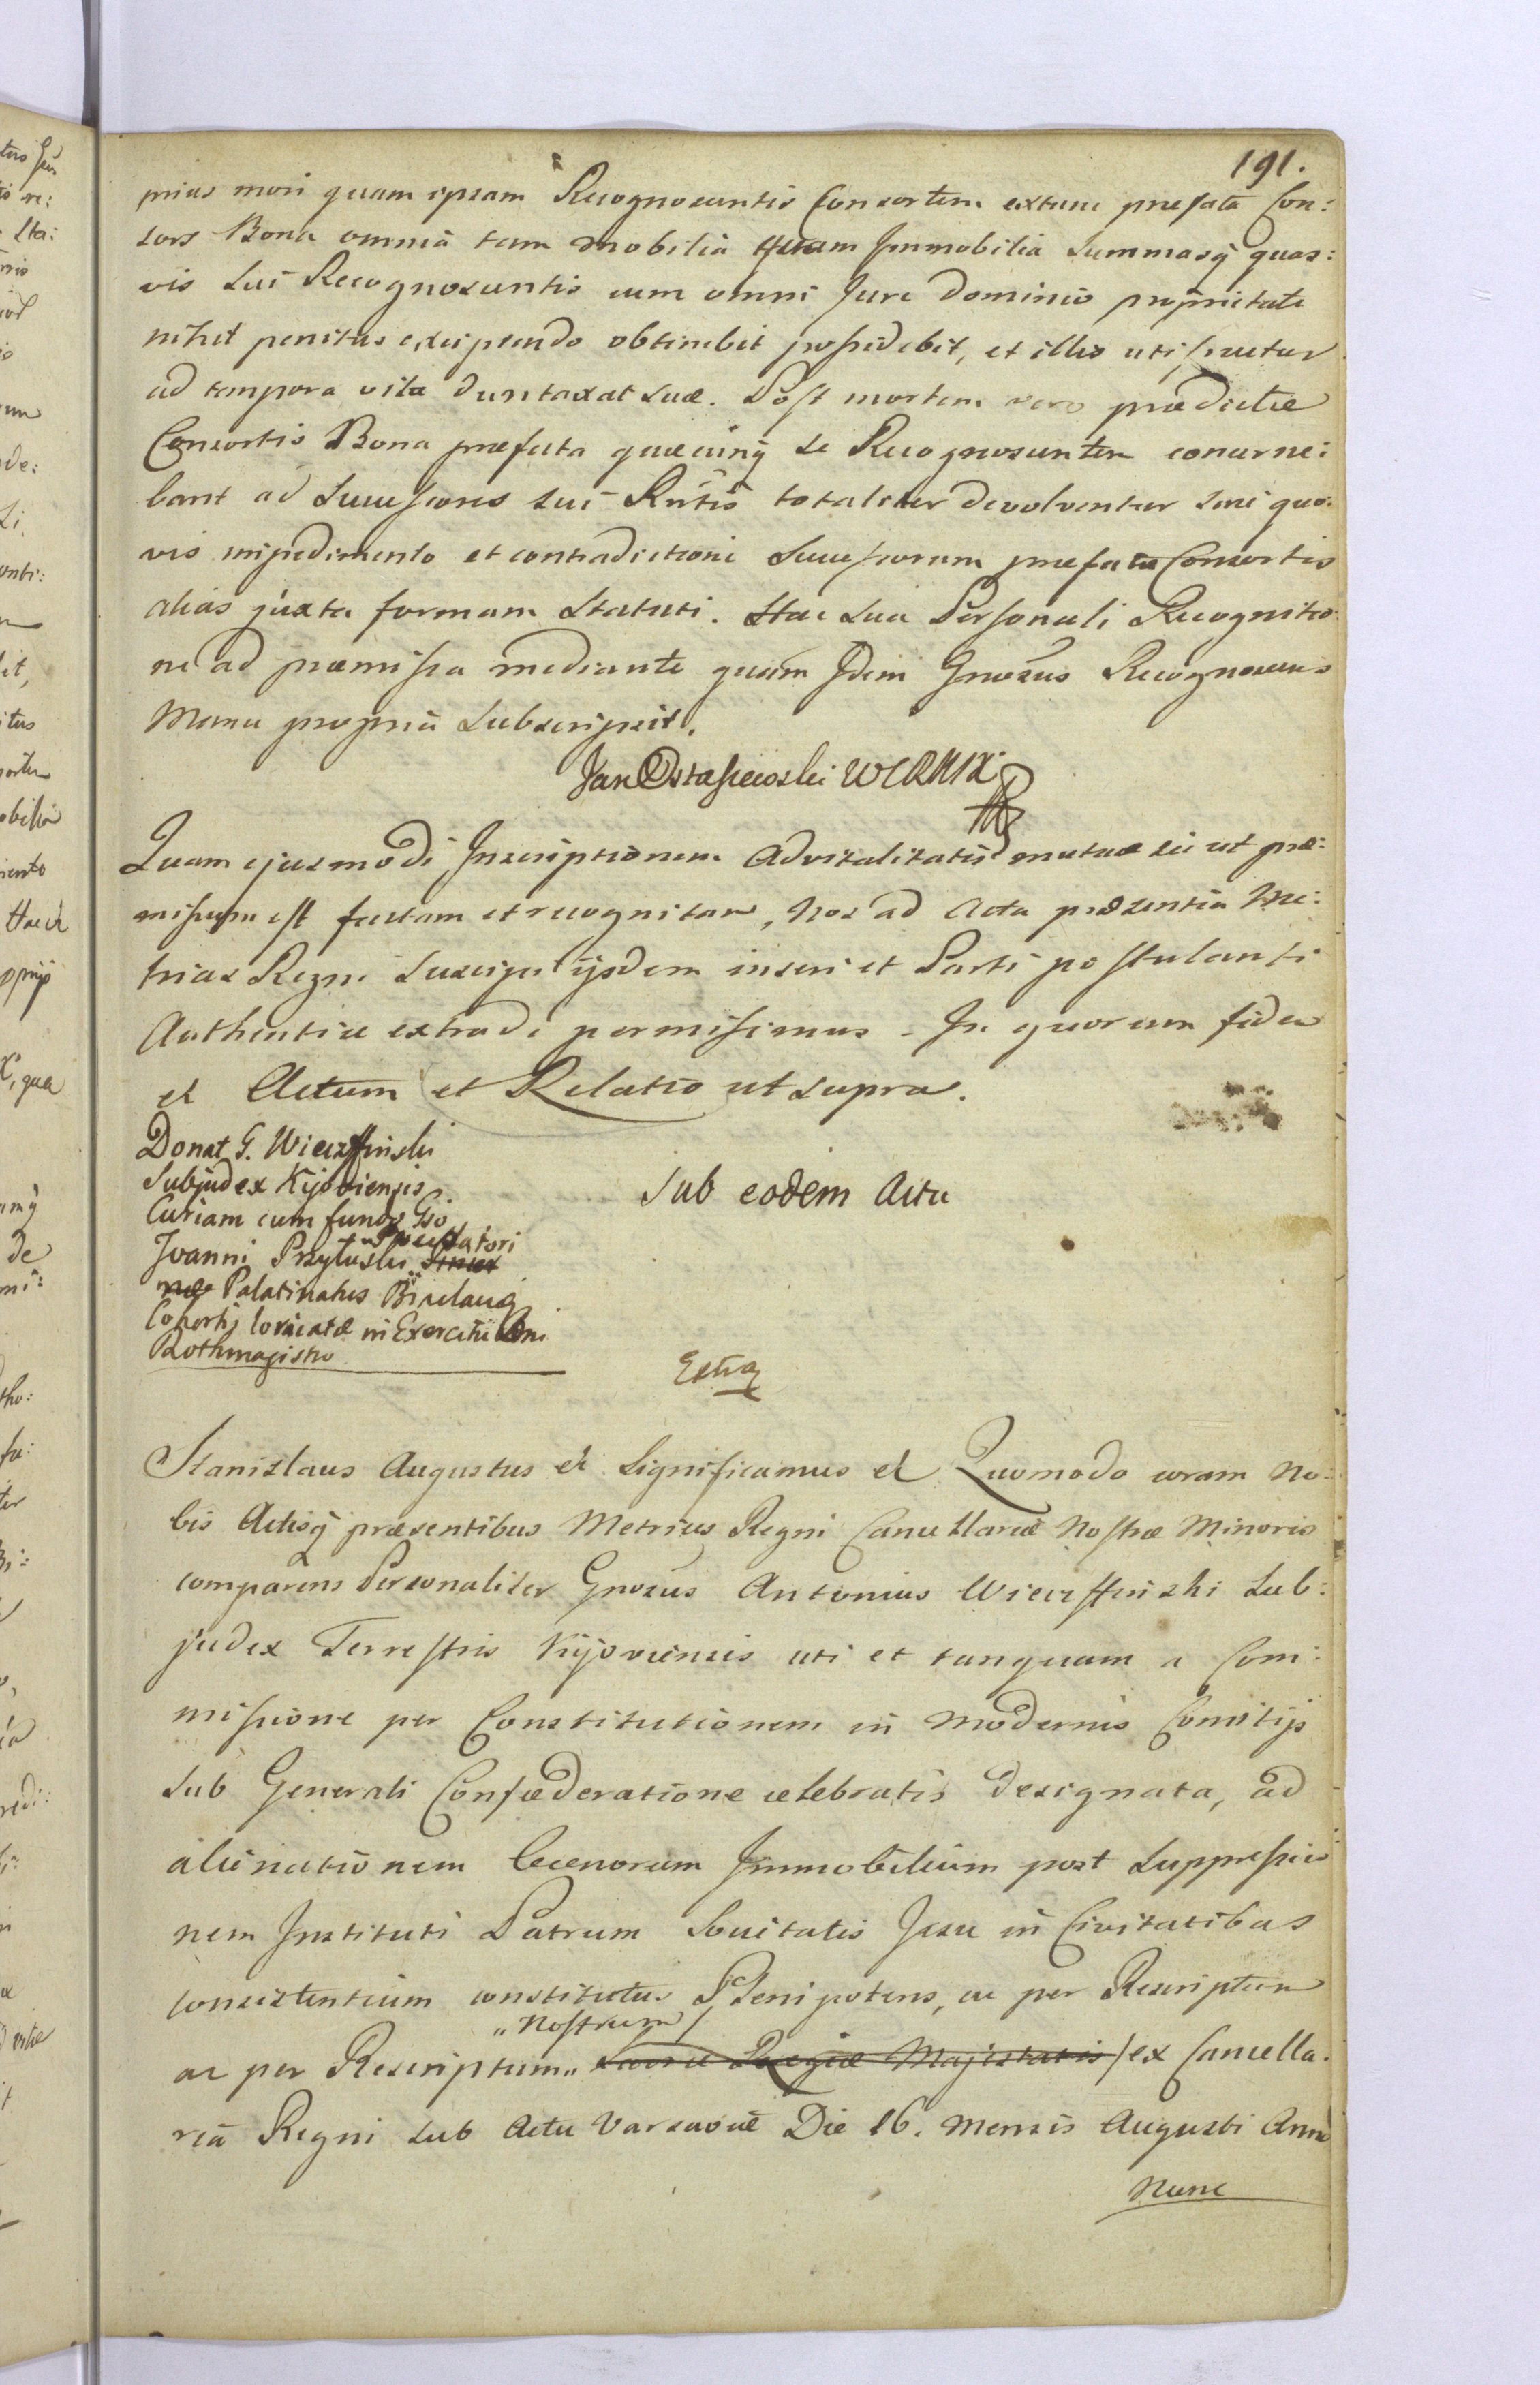 191.
prius mori quam ipsam Recognoscentis Consortem extunc præfata Con:
sors Bona omnia tam mobilia quam Immobilia Summasq̃ quas:
vis Sui Recognoscentis cum omni Jure Dominio proprietate
nihil penitus excipiendo obtinebit possidebit, et illis uti fruetur
ad tempora vitæ duntaxat suæ. Post mortem vero prædictæ
Consortis Bona præfata quæcunq̃ se Recognoscentem concerne:
bant ad Successores sui Rñtis totaliter devolventur sine quo:
vis impedimento et contradictione Successorum præfatæ Consortis
alias juxta formam Statuti. Hac sua Personali Recognitio
ne ad præmissa mediante quam Idem Gnosus Recognoscens
Manu propria Subscripsit.
Jan Ostaszewski
Quam ejusmodi Inscriptionem Advitalitatis mutuæ sic ut præ:
missum est factam et recognitam, Nos ad Acta præsentia Me:
trices Regni Suscipi ijsdem inseri et Parti postulanti
Authentice extradi permisimus. In quorum fidem
et Actum et Relatio ut supra.
Donat G. Wierzffinski
Subjudex Kijoviensis
Curiam cum fundo Gso
Joanni Przyłuski
Palatinatus
Cohortis loricatæ in Exercitu
Rothmagistro
Sub eodem Actu
Extrq
Stanislaus Augustus et Significamus et Quomodo coram No:
bis Actisq̃ præsentibus Metrices Regni Cancellariæ Nostræ Minoris
comparens Personaliter Gnosus Antonius Wierzffinski Sub:
judex Terrestris Kijoviensis uti et tanquam a Com:
missione per Constitutionem in modernis Comitijs
Sub Generali Confæderatione celebratis designata, ad
alienationem Bonorum Immobilium post Suppressio
nem Instituti Patrum Societatis Jesu in Civitatibus
consistentium constitutus Plenipotens, ac per Rescriptum
„Nostrum
ac per Rescriptum„ Sacræ Regiæ Majestatis / ex Cancella:
ria Regni sub Actu Varsaviæ Die 16. Mensis Augusti Anno
Nunc